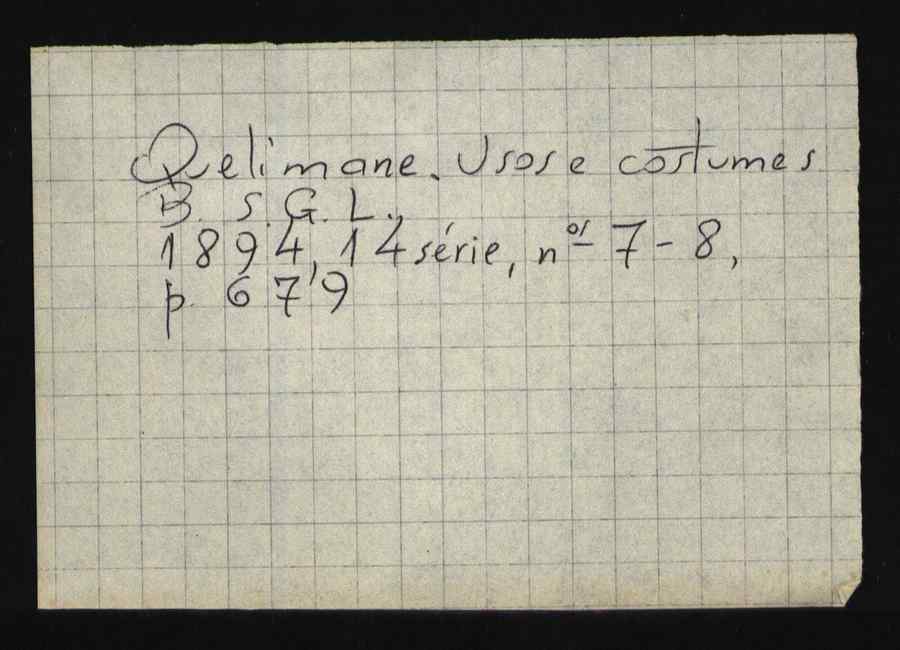 Quelimane. Usos e costumes
B. S. G. L.,
1894, 14 série, nos 7-8,
p. 679